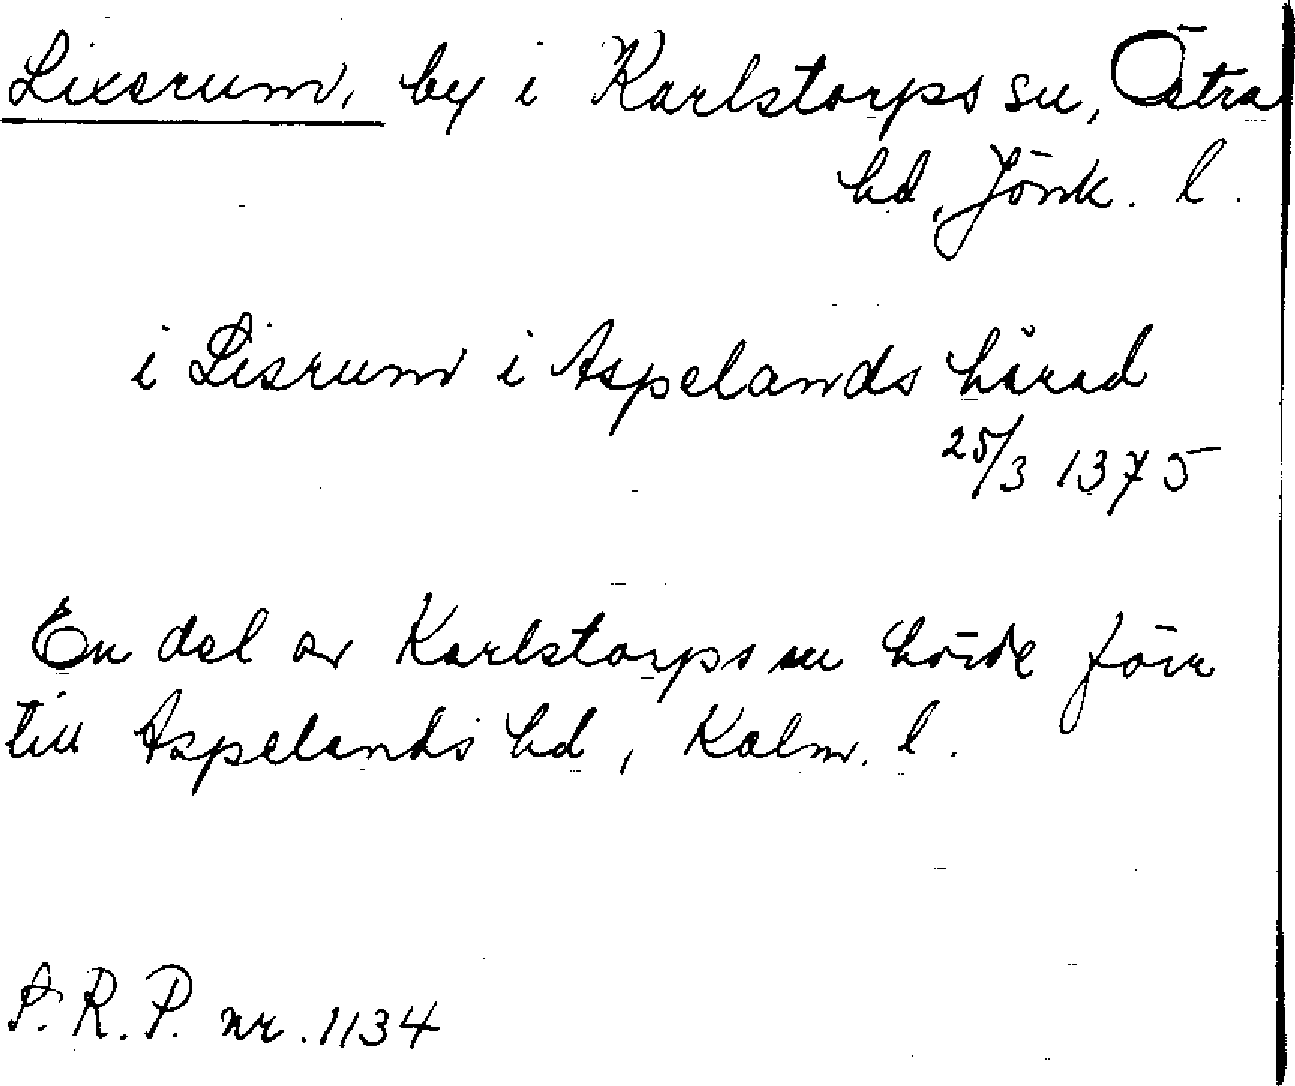 Lixerum, by i Karlstorps sn, Östra
hd, Jönk. l.
i Lisrum i Aspelands härad
25/3 1375
En del av Karlstorps sn hörde förr
till Aspelands hd, Kalm. l.
S. R. P. nr. 1134